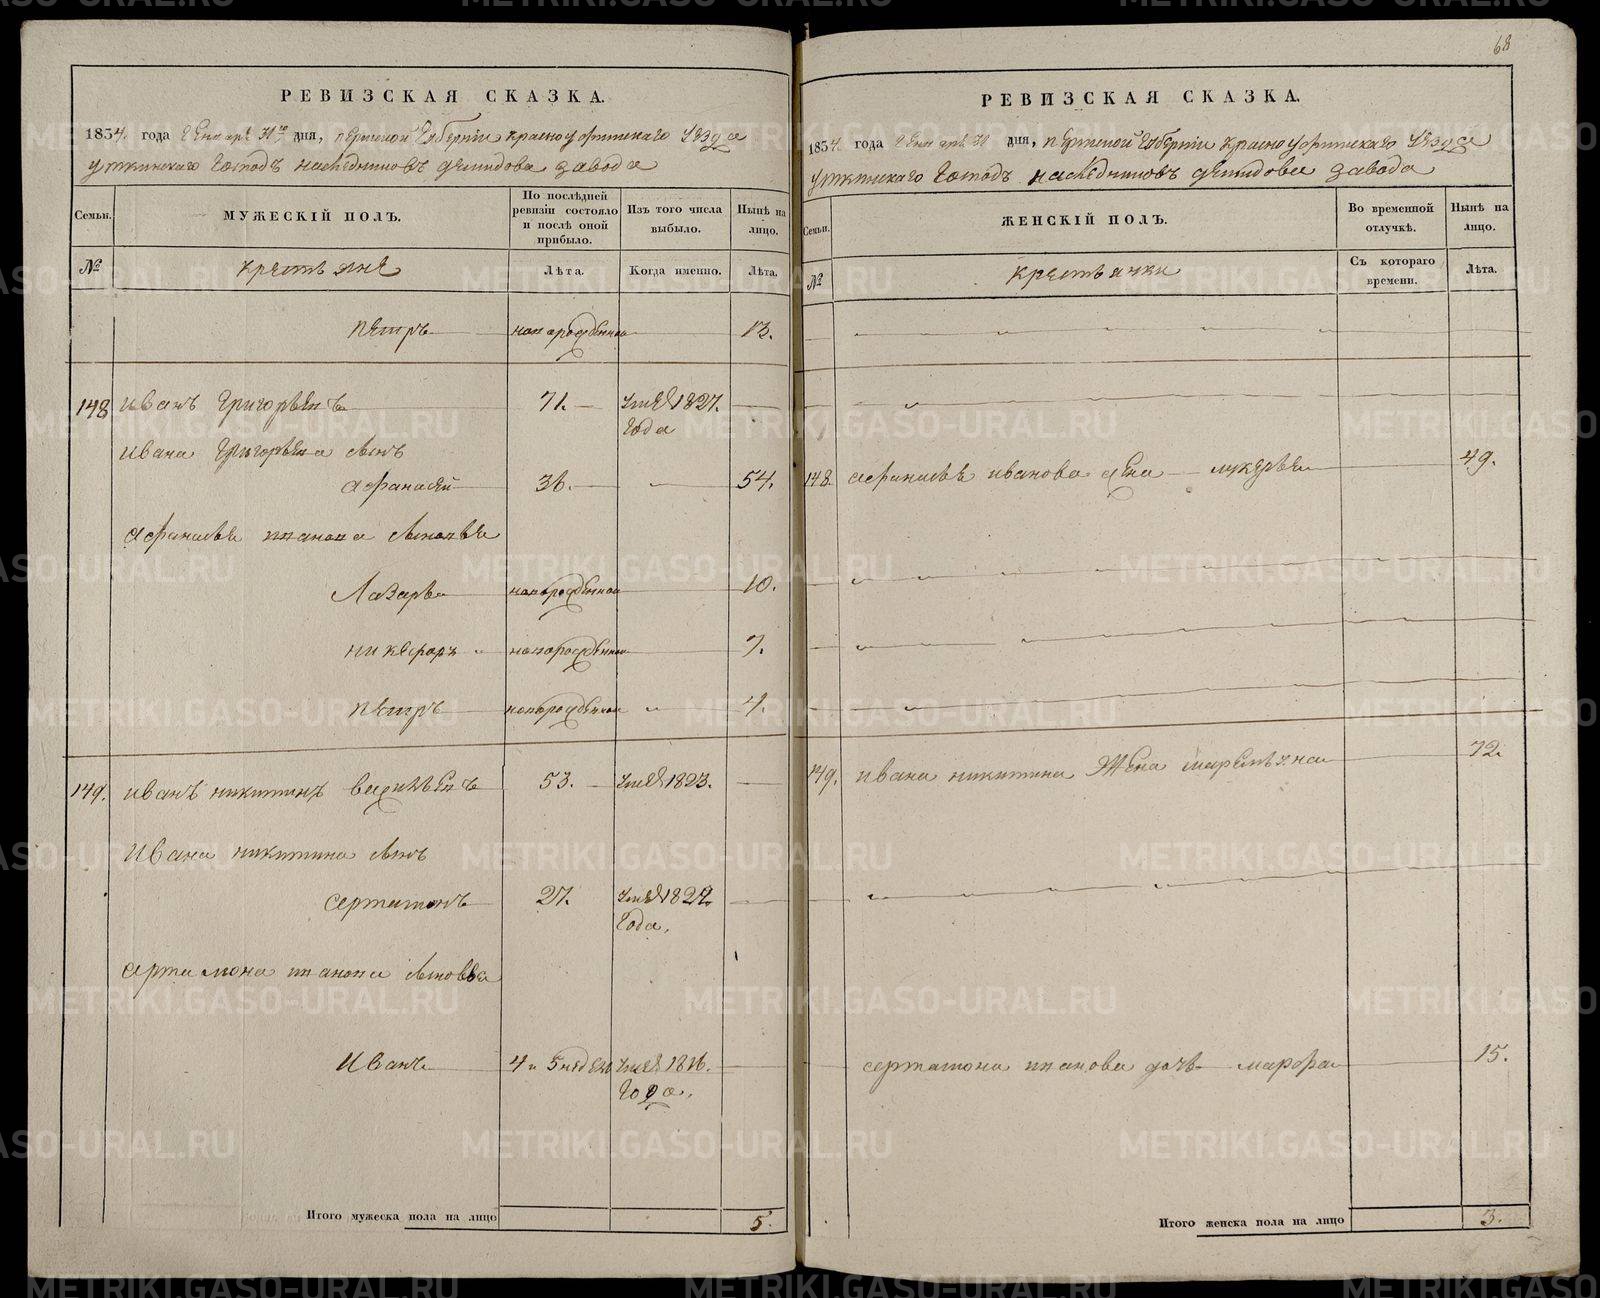 РЕВИЗСКАЯ СКАЗКА.
1834. года Генваря 31го дня, Пермской Губернии красноуфимского уезда
уткинского Господъ наследниковъ демидова завода
Семьи.
МУЖЕСКІЙ ПОЛЪ.
По послѣдней ревизіи состояло и послѣ оной прибыло.
Изъ того числа выбыло.
Нынѣ на лицо.
№
крестьяне
Лѣта.
Когда именно.
Лѣта.
петръ новорожденной 13.
148 иванъ Григорьевъ 71. умре 1827. Года
ивана Григорьева сынъ
афанасей 36. 54.
афанасья иванова сыновья
Лазарь новорожденной 10.
никифоръ новорожденной 7.
петръ новорожденной 4.
149. иванъ никитинъ 53. умре 1823.
Ивана никитина сынъ
артамонъ 27. умре 1822. Года.
артамона иванова сыновья
Иванъ 4 и 5 недель умре 1816. Года.
Итого мужеска пола на лицо 5.
68
РЕВИЗСКАЯ СКАЗКА.
1834. года Генваря 31 дня, Пермской Губернии красноуфимского уезда
уткинского Господъ наследниковъ демидова завода
Семьи.
ЖЕНСКІЙ ПОЛЪ.
Во временной отлучкѣ.
Нынѣ на лицо.
№
крестьянки
Съ котораго времени.
Лѣта.
148. афанасья иванова жена лукерья 49.
149. ивана никитина жена маремьяна 72.
артамона иванова дочь марфа 15.
Итого женска пола на лицо 3.
METRIKI.GASO-URAL.RU